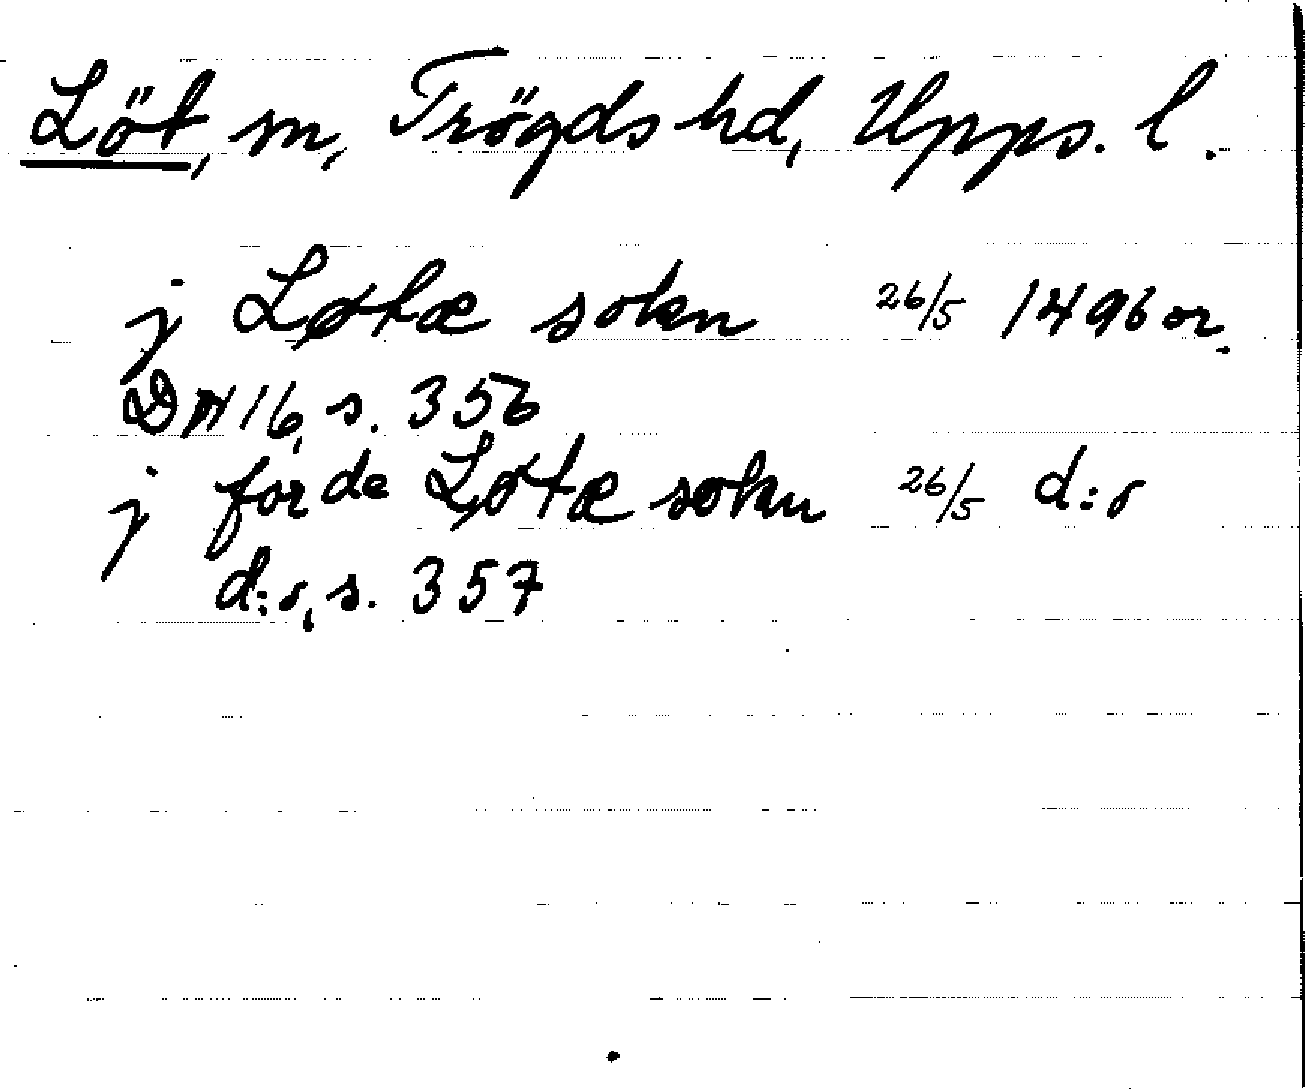 Löt, sn, Trögds hd, Upps. l.
j Løtæ sokn 26/5 1496 or.
DN 16, s. 356
j forde Løtæ sokn 26/5 d:o
d:o, s. 357